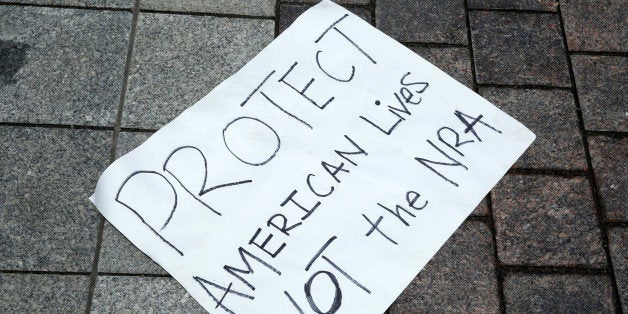 PROTECT
AMERICAN lives
NOT the NRA